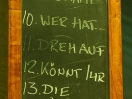 10. WER HAT..
11. DREH AUF
12. KÖNNT IHR
13. DIE